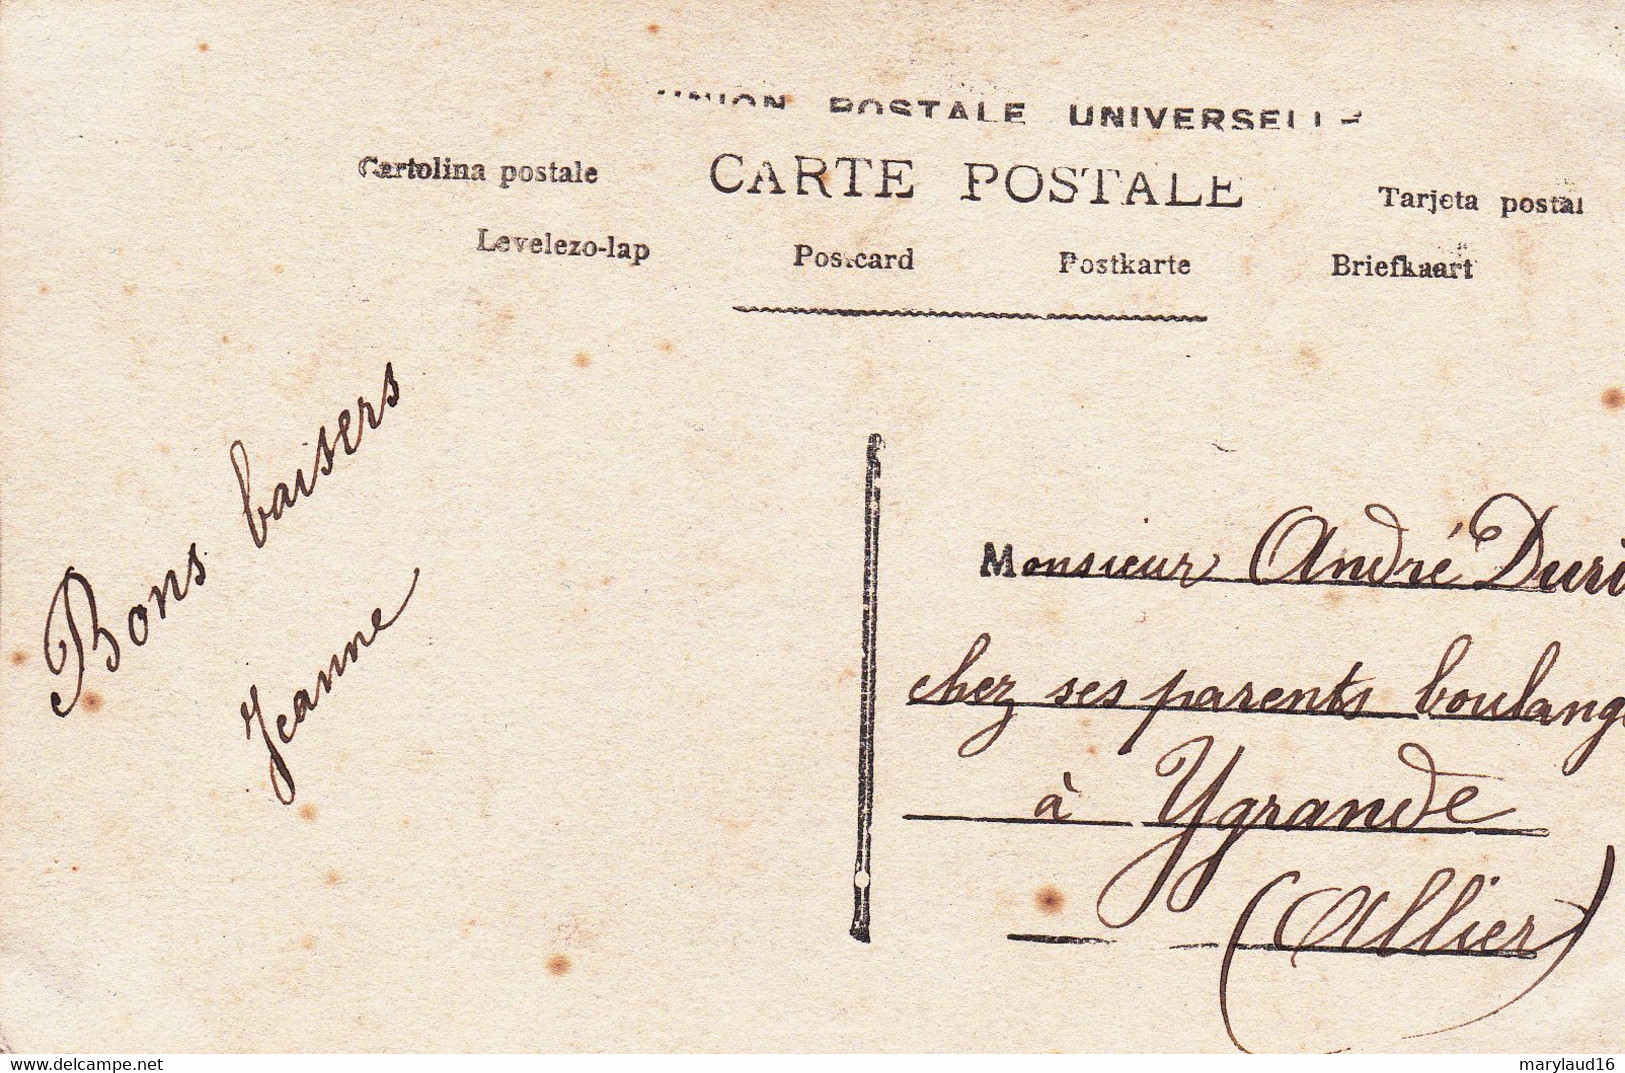 UNION POSTALE UNIVERSELLE
CARTE POSTALE
Cartolina postale
Tarjeta postal
Levelezo-lap
Postcard
Postkarte
Briefkaart
Bons baisers
Jeanne
Monsieur André Duri
chez ses parents boulang
à Ygrande
(Allier)
www.delcampe.net
marylaud16